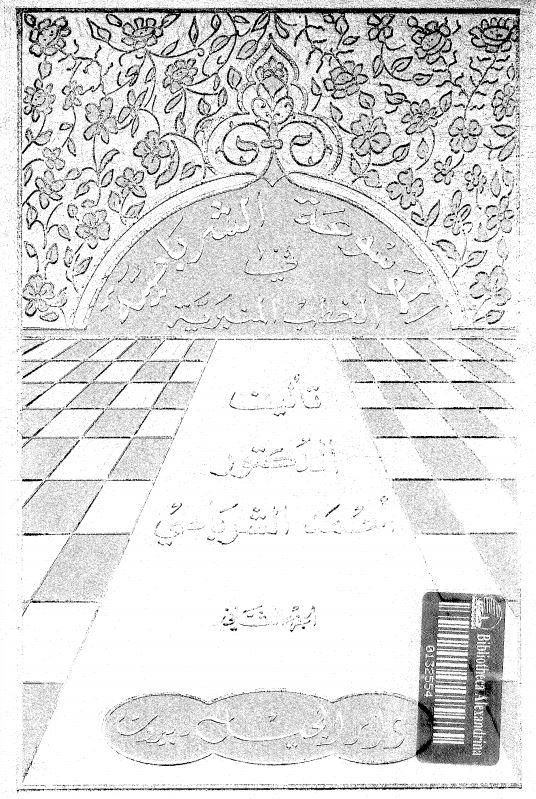 موسوعة الشرباصي
في
الخطب المنبرية
تأليف
الدكتور
أحمد الشرباصي
الجزء الثاني
دار الجيل - بيروت
Bibliotheca Alexandrina
0132554